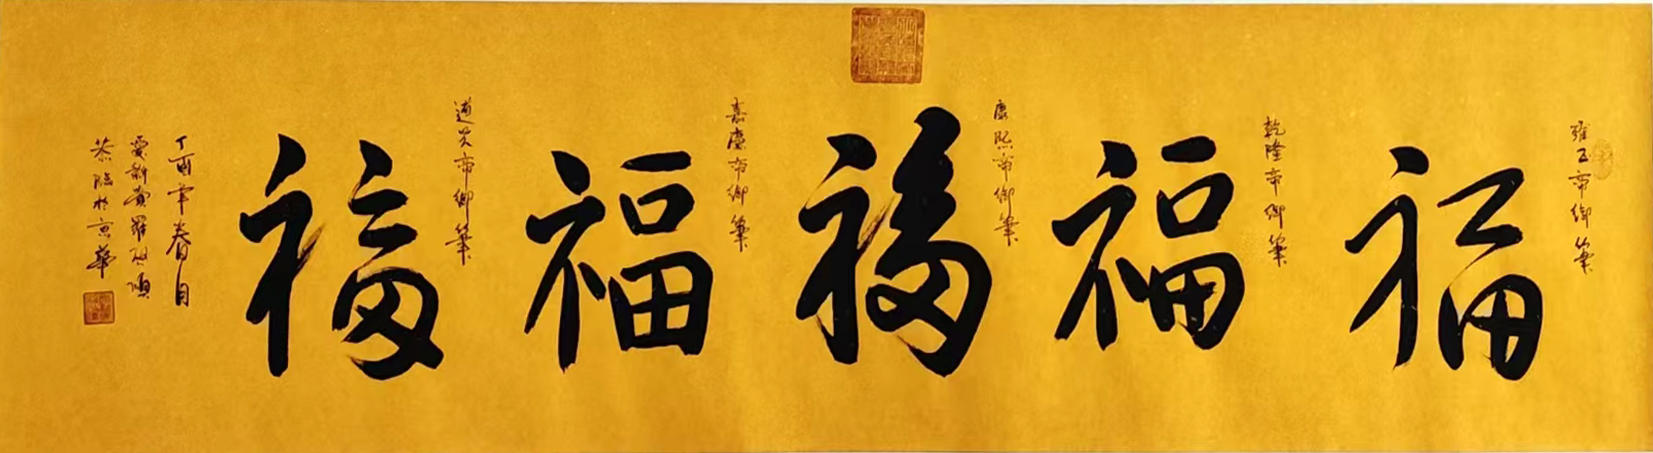 雍正帝御筆
福
乾隆帝御筆
福
康熙帝御筆
福
嘉慶帝御筆
福
道光帝御筆
福
丁酉年春月
愛新覺羅
恭臨於京華